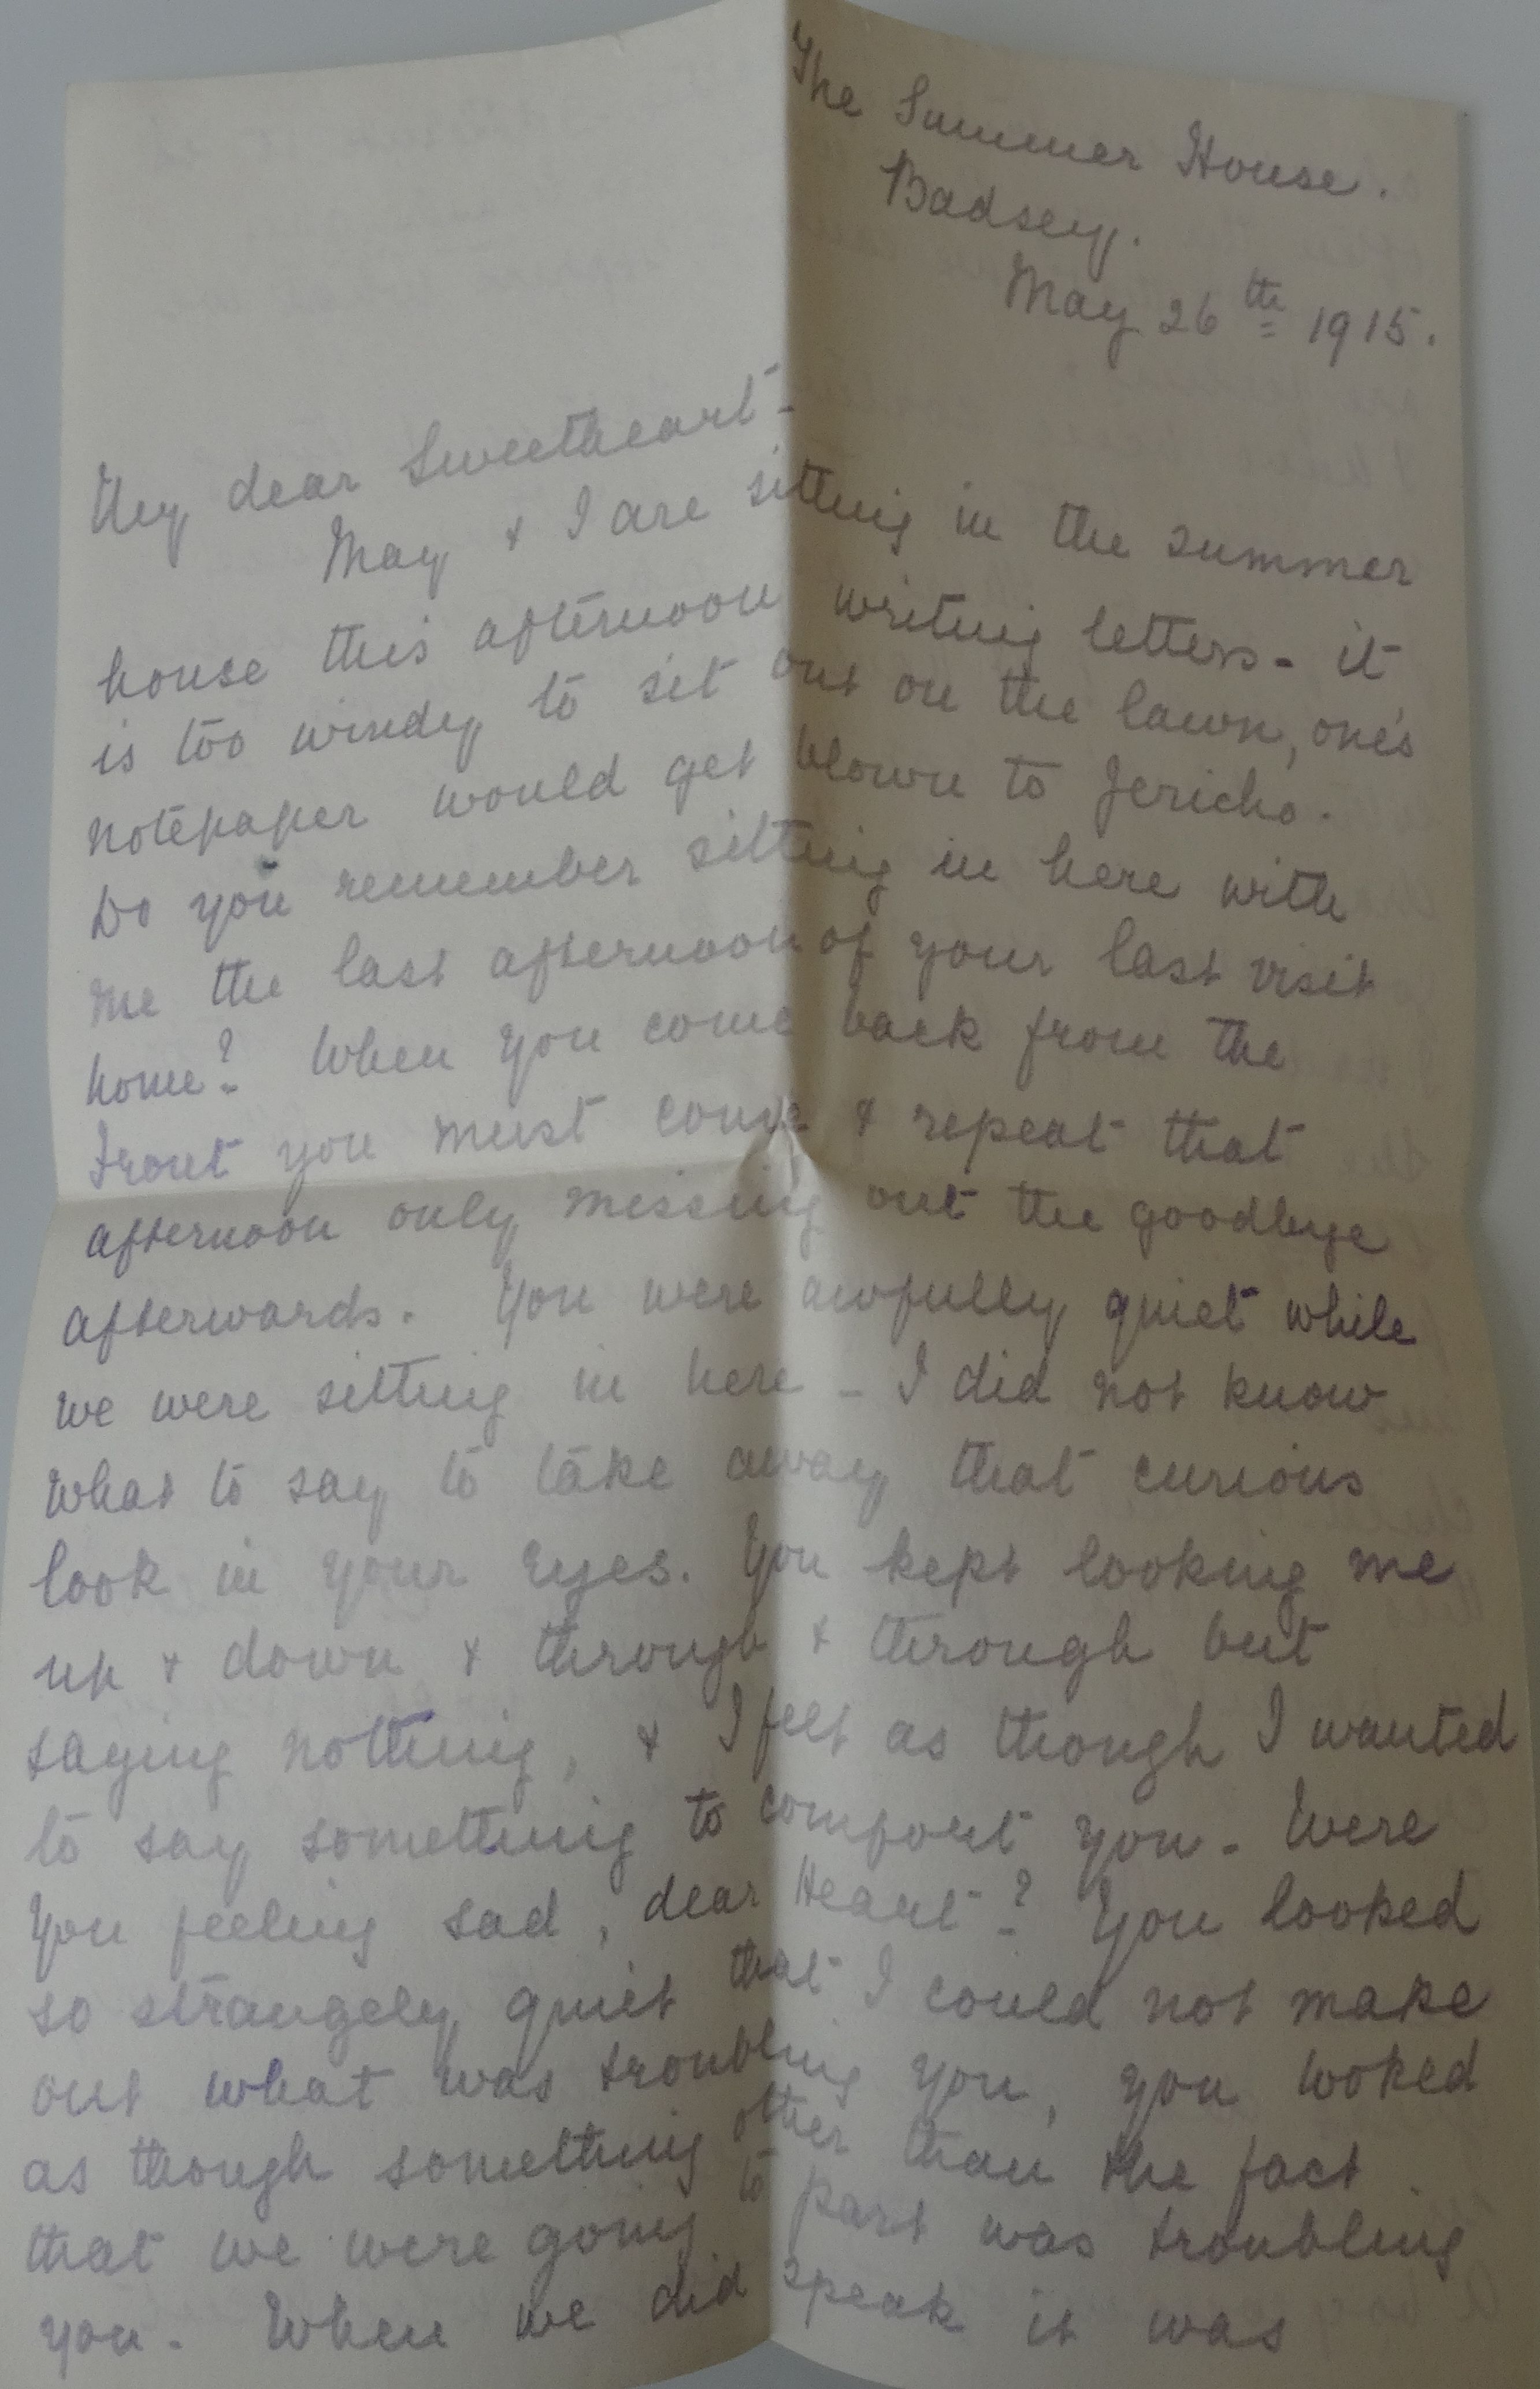 The Summer House.
Badsey.
May 26th 1915.
My dear Sweetheart -
May & I are sitting in the summer
house this afternoon writing letters - it
is too windy to sit out on the lawn, one's
notepaper would get blown to Jericho.
Do you remember sitting in here with
me the last afternoon of your last visit
home? When you come back from the
front you must come & repeat that
afternoon only missing out the goodbye
afterwards. You were awfully quiet while
we were sitting in here - I did not know
what to say to take away that curious
look in your eyes. You kept looking me
up & down & through & through but
saying nothing, & I felt as though I wanted
to say something to comfort you. Were
you feeling sad, dear Heart? You looked
so strangely quiet that I could not make
out what was troubling you, you looked
as though something other than the fact
that we were going to part was troubling
you. When we did speak it was